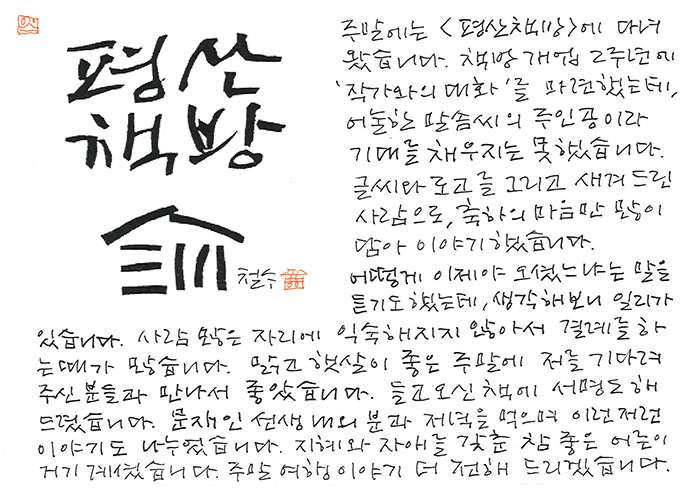 평산
책방
철수
주말에는 <평산책방>에 다녀
왔습니다. 책방 개업 2주년에
'작가와의 대화'를 마련했는데,
어눌한 말솜씨의 주인공이라
기대를 채우지는 못했습니다.
글씨와 로고를 그리고 새겨 드린
사람으로, 축하의 마음만 많이
담아 이야기했습니다.
어떻게 이제야 오셨느냐는 말을
듣기도 했는데, 생각해보니 일리가
있습니다. 사람 많은 자리에 익숙해지지 않아서 결례를 하
는 때가 많습니다. 맑고 햇살이 좋은 주말에 저를 기다려
주신 분들과 만나서 좋았습니다. 들고 오신 책에 서명도 해
드렸습니다. 문재인 선생 내외 분과 저녁을 먹으며 이런저런
이야기도 나누었습니다. 지혜와 자애를 갖춘 참 좋은 어른이
거기 계셨습니다. 주말 여행 이야기 더 전해 드리겠습니다.